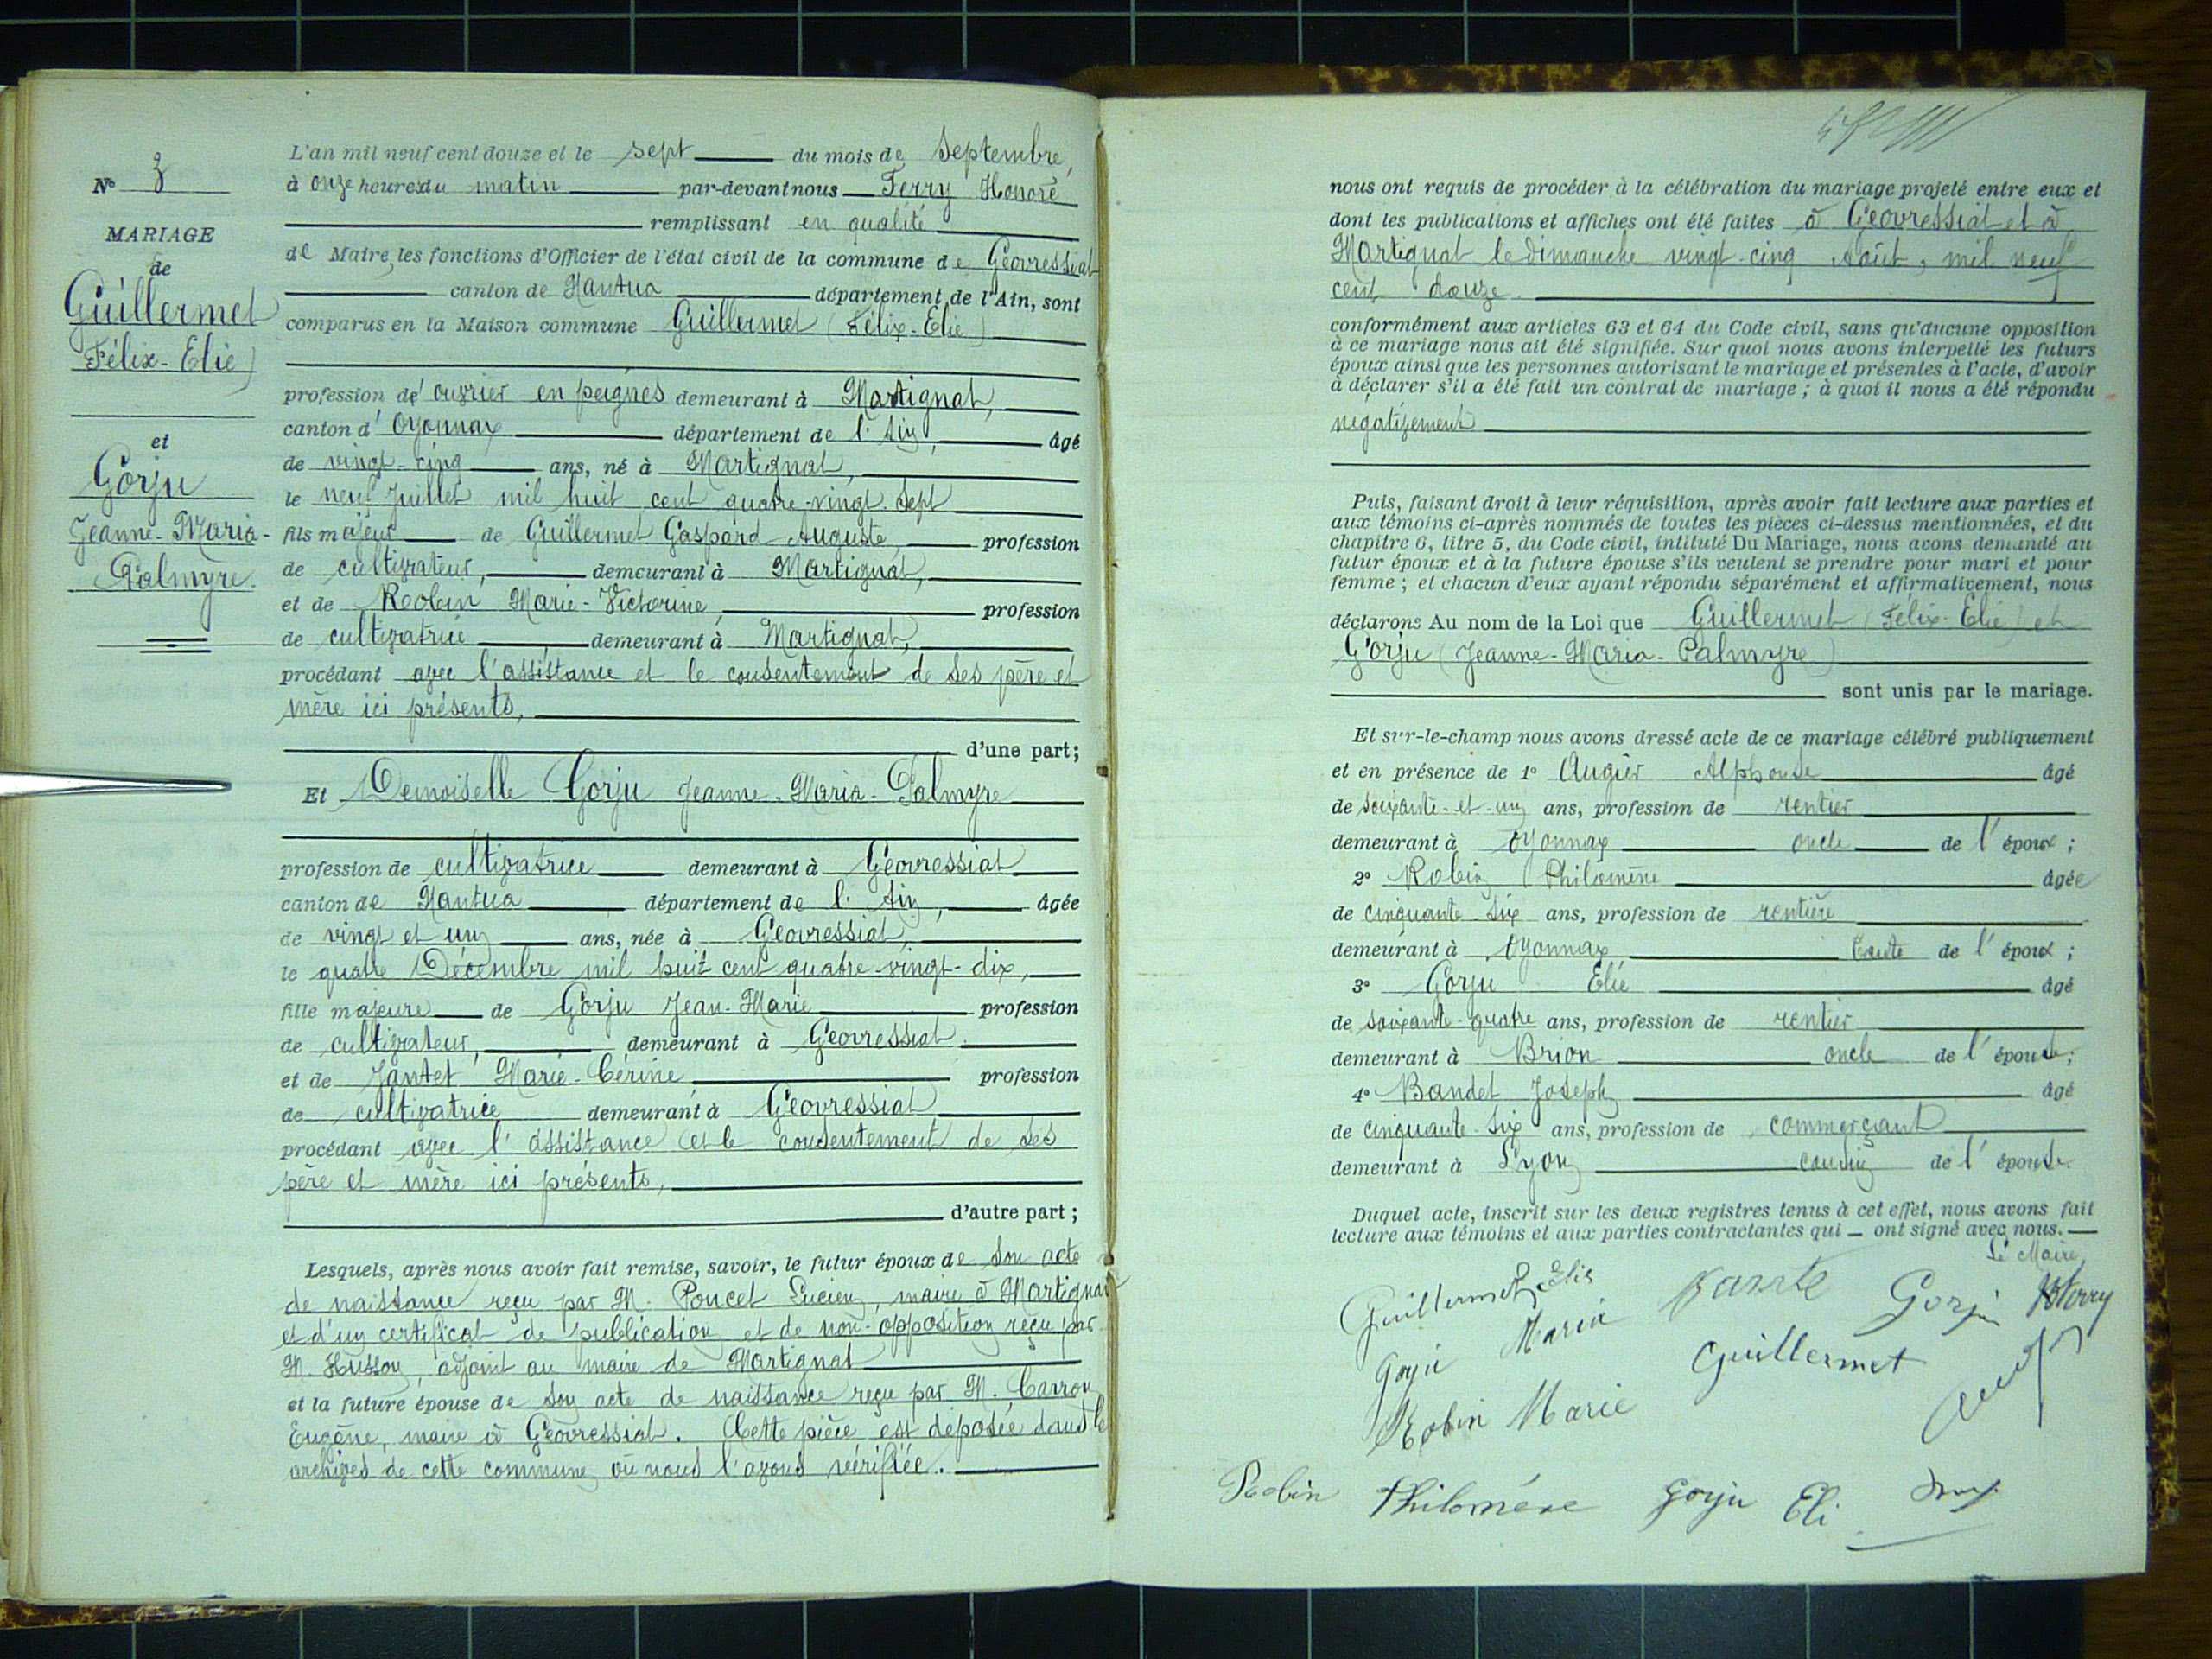 N° 3
MARIAGE
de
Guillermet
Félix-Elie)
et
Gorju
Jeanne-Maria-
Palmyre.
L'an mil neuf cent douze et le sept du mois de Septembre,
à onze heures du matin par-devant nous Ferry Honoré
remplissant en qualité
de Maire, les fonctions d'Officier de l'état civil de la commune de Géovressiat
canton de Nantua département de l'Ain, sont
comparus en la Maison commune Guillermet (Félix-Elie)
profession d'ouvrier en peignes demeurant à Martignat,
canton d'Oyonnax département de l'Ain, âgé
de vingt-cinq ans, né à Martignat,
le neuf Juillet mil huit cent quatre-vingt-sept
fils majeur de Guillermet Gaspard Auguste, profession
de cultivateur, demeurant à Martignat,
et de Robin Marie-Victorine, profession
de cultivatrice demeurant à Martignat,
procédant avec l'assistance et le consentement de ses père et
mère ici présents,
d'une part;
Et Demoiselle Gorju Jeanne-Maria-Palmyre
profession de cultivatrice demeurant à Géovressiat
canton de Nantua département de l'Ain, âgée
de vingt et un ans, née à Géovressiat,
le quatre Décembre mil huit cent quatre-vingt-dix,
fille majeure de Gorju Jean-Marie profession
de cultivateur, demeurant à Géovressiat.
et de Jantet Marie-Cérine, profession
de cultivatrice demeurant à Géovressiat
procédant avec l'assistance et le consentement de ses
père et mère ici présents,
d'autre part;
Lesquels, après nous avoir fait remise, savoir, le futur époux de son acte
de naissance reçu par M. Poncet Lucien, maire à Martignat
et d'un certificat de publication et de non-opposition reçu par
M. Husson, adjoint au maire de Martignat
et la future épouse de son acte de naissance reçu par M. Carron
Eugène, maire à Géovressiat. Cette pièce est déposée dans les
archives de cette commune où nous l'avons vérifiée.
nous ont requis de procéder à la célébration du mariage projeté entre eux et
dont les publications et affiches ont été faites à Géovressiat et à
Martignat le dimanche vingt-cinq Août, mil neuf
cent douze.
conformément aux articles 63 et 64 du Code civil, sans qu'aucune opposition
à ce mariage nous ait été signifiée. Sur quoi nous avons interpellé les futurs
époux ainsi que les personnes autorisant le mariage et présentes à l'acte, d'avoir
à déclarer s'il a été fait un contrat de mariage; à quoi il nous a été répondu
négativement
Puis, faisant droit à leur réquisition, après avoir fait lecture aux parties et
aux témoins ci-après nommés de toutes les pièces ci-dessus mentionnées, et du
chapitre 6, titre 5, du Code civil, intitulé Du Mariage, nous avons demandé au
futur époux et à la future épouse s'ils veulent se prendre pour mari et pour
femme; et chacun d'eux ayant répondu séparément et affirmativement, nous
déclarons Au nom de la Loi que Guillermet (Félix-Elie) et
Gorju (Jeanne-Maria-Palmyre)
sont unis par le mariage.
Et sur-le-champ nous avons dressé acte de ce mariage célébré publiquement
et en présence de 1° Augier Alphonse âgé
de soixante-et-un ans, profession de rentier
demeurant à Oyonnax oncle de l'époux;
2° Robin Philomène âgée
de cinquante-six ans, profession de rentière
demeurant à Oyonnax tante de l'époux;
3° Gorju Elie âgé
de soixante-quatre ans, profession de rentier
demeurant à Brion oncle de l'épouse;
4° Bandet Joseph âgé
de cinquante-six ans, profession de commerçant
demeurant à Lyon cousin de l'épouse.
Duquel acte, inscrit sur les deux registres tenus à cet effet, nous avons fait
lecture aux témoins et aux parties contractantes qui ont signé avec nous.
Le Maire,
Guillermet Elie Gorju HFerry
Gorju Maria Guillermet
Robin Marie
Robin Philomène Gorju Eli